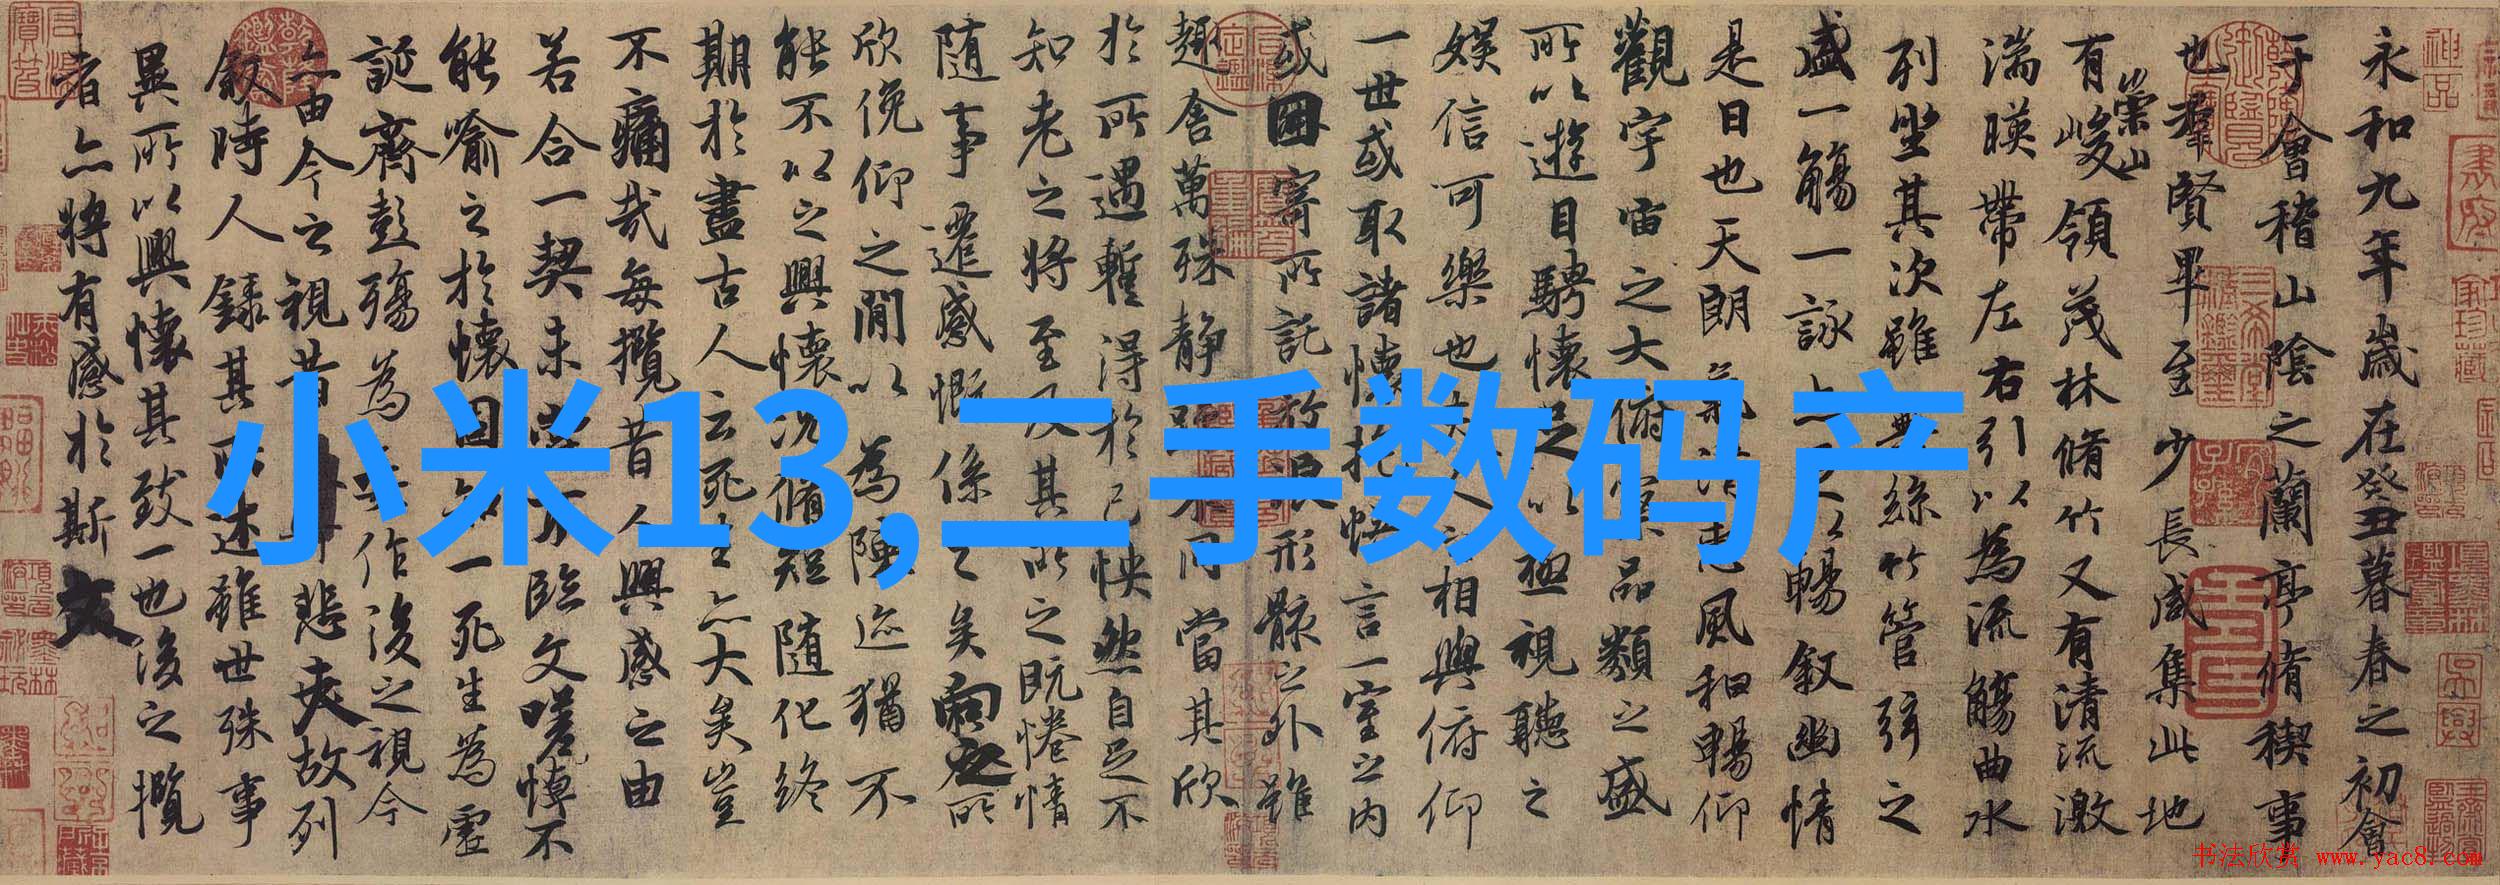 永和九年歲在癸丑暮春之初會
于會稽山陰之蘭亭脩稧事
也羣賢畢至少長咸集此地
有崇山峻領茂林脩竹又有清流激
湍暎帶左右引以為流觴曲水
列坐其次雖無絲竹管弦之
盛一觴一詠亦足以暢敘幽情
是日也天朗氣清惠風和暢仰
觀宇宙之大俯察品類之盛
所以遊目騁懷足以極視聽之
娛信可樂也夫人之相與俯仰
一世或取諸懷抱悟言一室之內
或因寄所託放浪形骸之外雖
趣舍萬殊靜躁不同當其欣
於所遇暫得於己怏然自足不
知老之將至及其所之既惓情
隨事遷感慨係之矣向之所
欣俛仰之閒以為陳迹猶不
能不以之興懷況脩短隨化終
期於盡古人云死生亦大矣豈
不痛哉每攬昔人興感之由
若合一契未嘗不臨文嗟悼不
能喻之於懷固知一死生為虛
誕齊彭殤為妄作後之視今
亦由今之視昔悲夫故列
敘時人錄其所述雖世殊事
異所以興懷其致一也後之攬
者亦將有感於斯文
小米13,二手数码产
书法欣赏 www.yac8.com